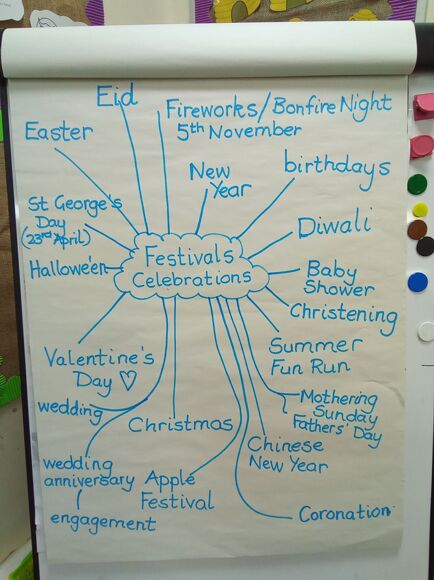 Eid
Fireworks/Bonfire Night
5th November
Easter
New
Year
birthdays
St George's
Day
(23rd April)
Diwali
Festivals
Celebrations
Hallowe'en
Baby
Shower
Christening
Summer
Fun Run
Valentine's
Day ♡
Mothering
Sunday
Fathers' Day
wedding
Christmas
Chinese
New Year
wedding
anniversary
Apple
Festival
engagement
Coronation